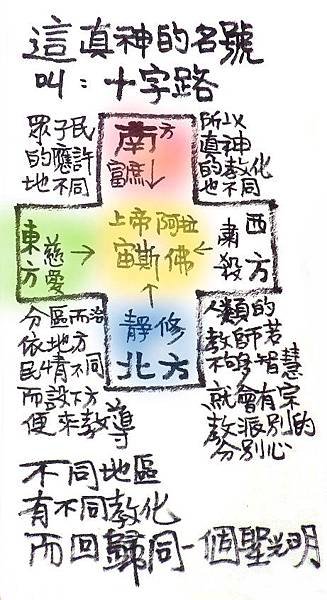 這真神的名號
叫：十字路
眾子民
的應許
地不同
南方
富庶
所以
真神
的教化
也不同
東方
慈愛
上帝阿拉
宙斯佛
西方
肅殺
靜修
北方
分區而治
依地方
民情不同
而設下方
便來教導
人類的
教師若
不夠智慧
就會有宗
教派別的
分別心
不同地區
有不同教化
而回歸同一個聖光明